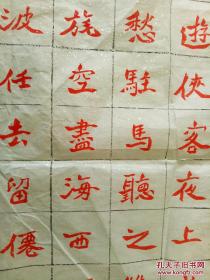 遊俠客夜上
愁駐馬聽之
旄空盡海西
波任去留僊